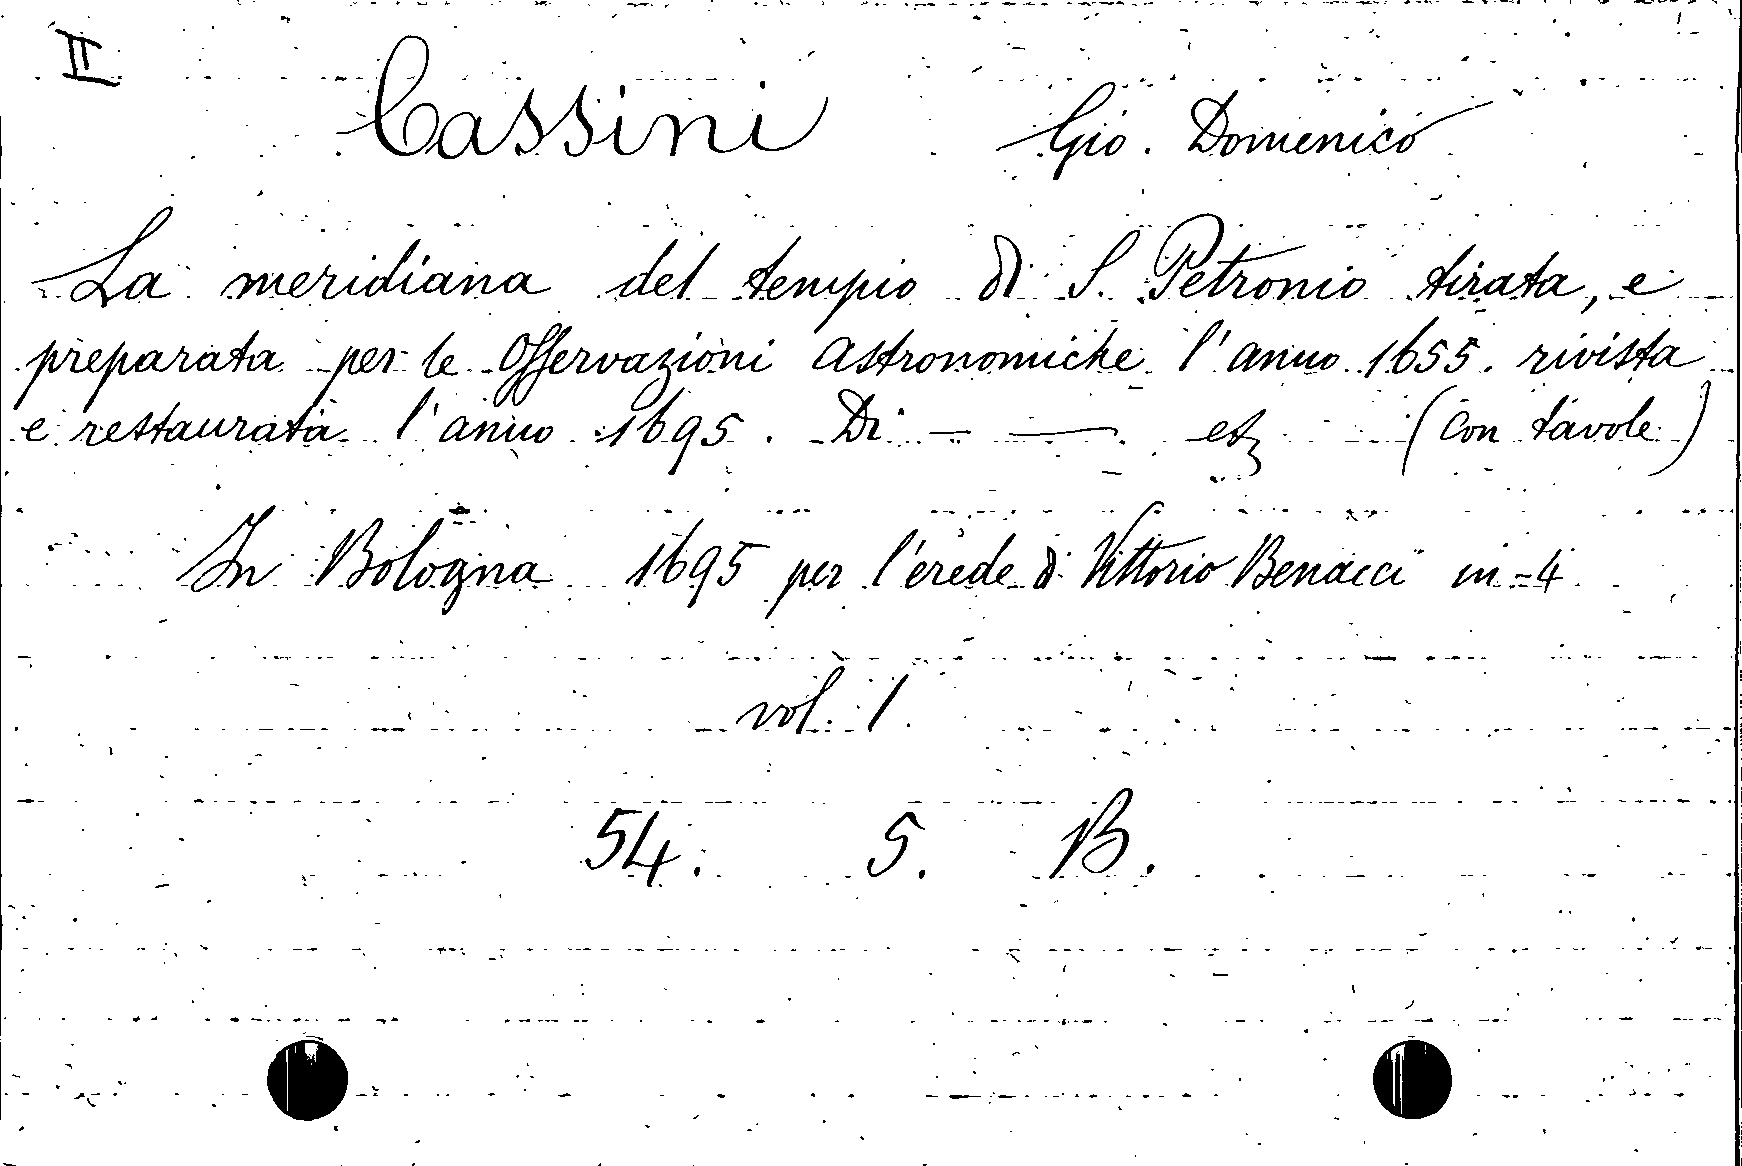 II
Cassini Gio. Domenico
La meridiana del tempio di S. Petronio tirata, e
preparata per le Osservazioni Astronomiche l'anno 1655. rivista
e restaurata l'anno 1695. Di — — etz (con tavole)
In Bologna 1695 per l'erede di Vittorio Benacci in-4
vol. 1.
54. 5. B.